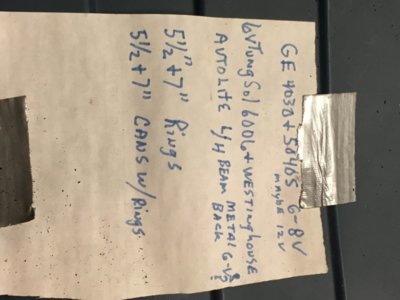 GE 4030 + 5040S 6-8V
MAYBE 12V
6V Tung Sol 6006 + WESTINGHOUSE
AUTOLITE L/H BEAM METAL 6-V?
BACK
5½" + 7" Rings
5½ + 7" CANS W/Rings